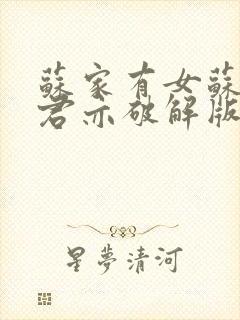 蘇家有女蘇
君亦破解版
星夢清河